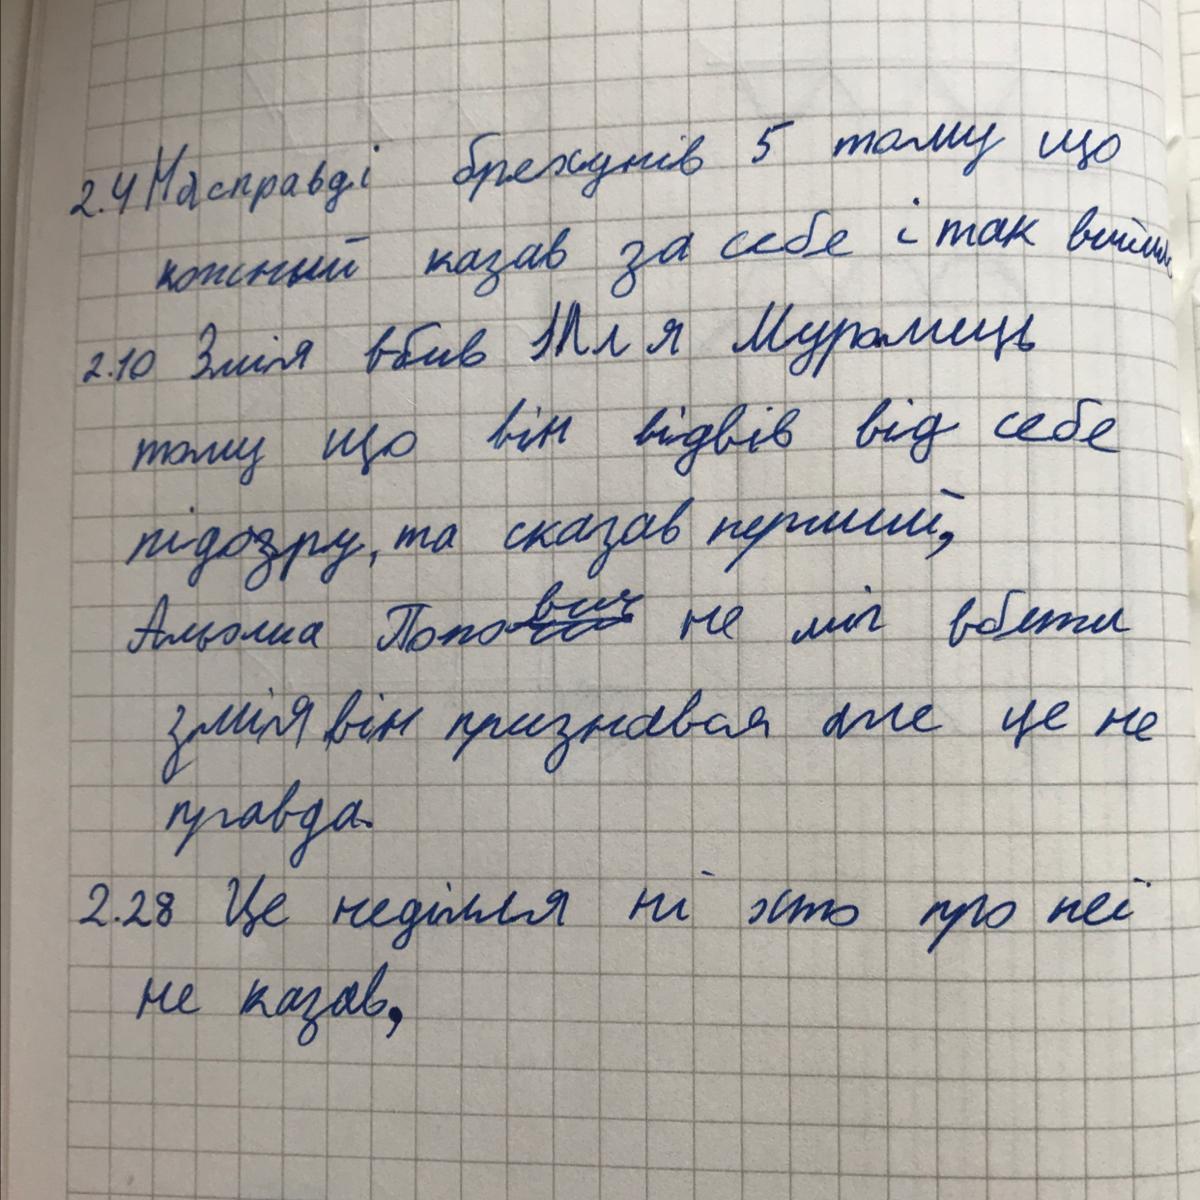 2.4 Насправді брехунів 5 тому що
кожный казав за себе і так
2.10 Змія вбив Ілля Муромиць
тому що він відвів від себе
підозру, та сказав перший,
Альоша Попович не міг вбети
змія він признавая але це не
правда.
2.28 Це неділля ні хто про неї
не казав,